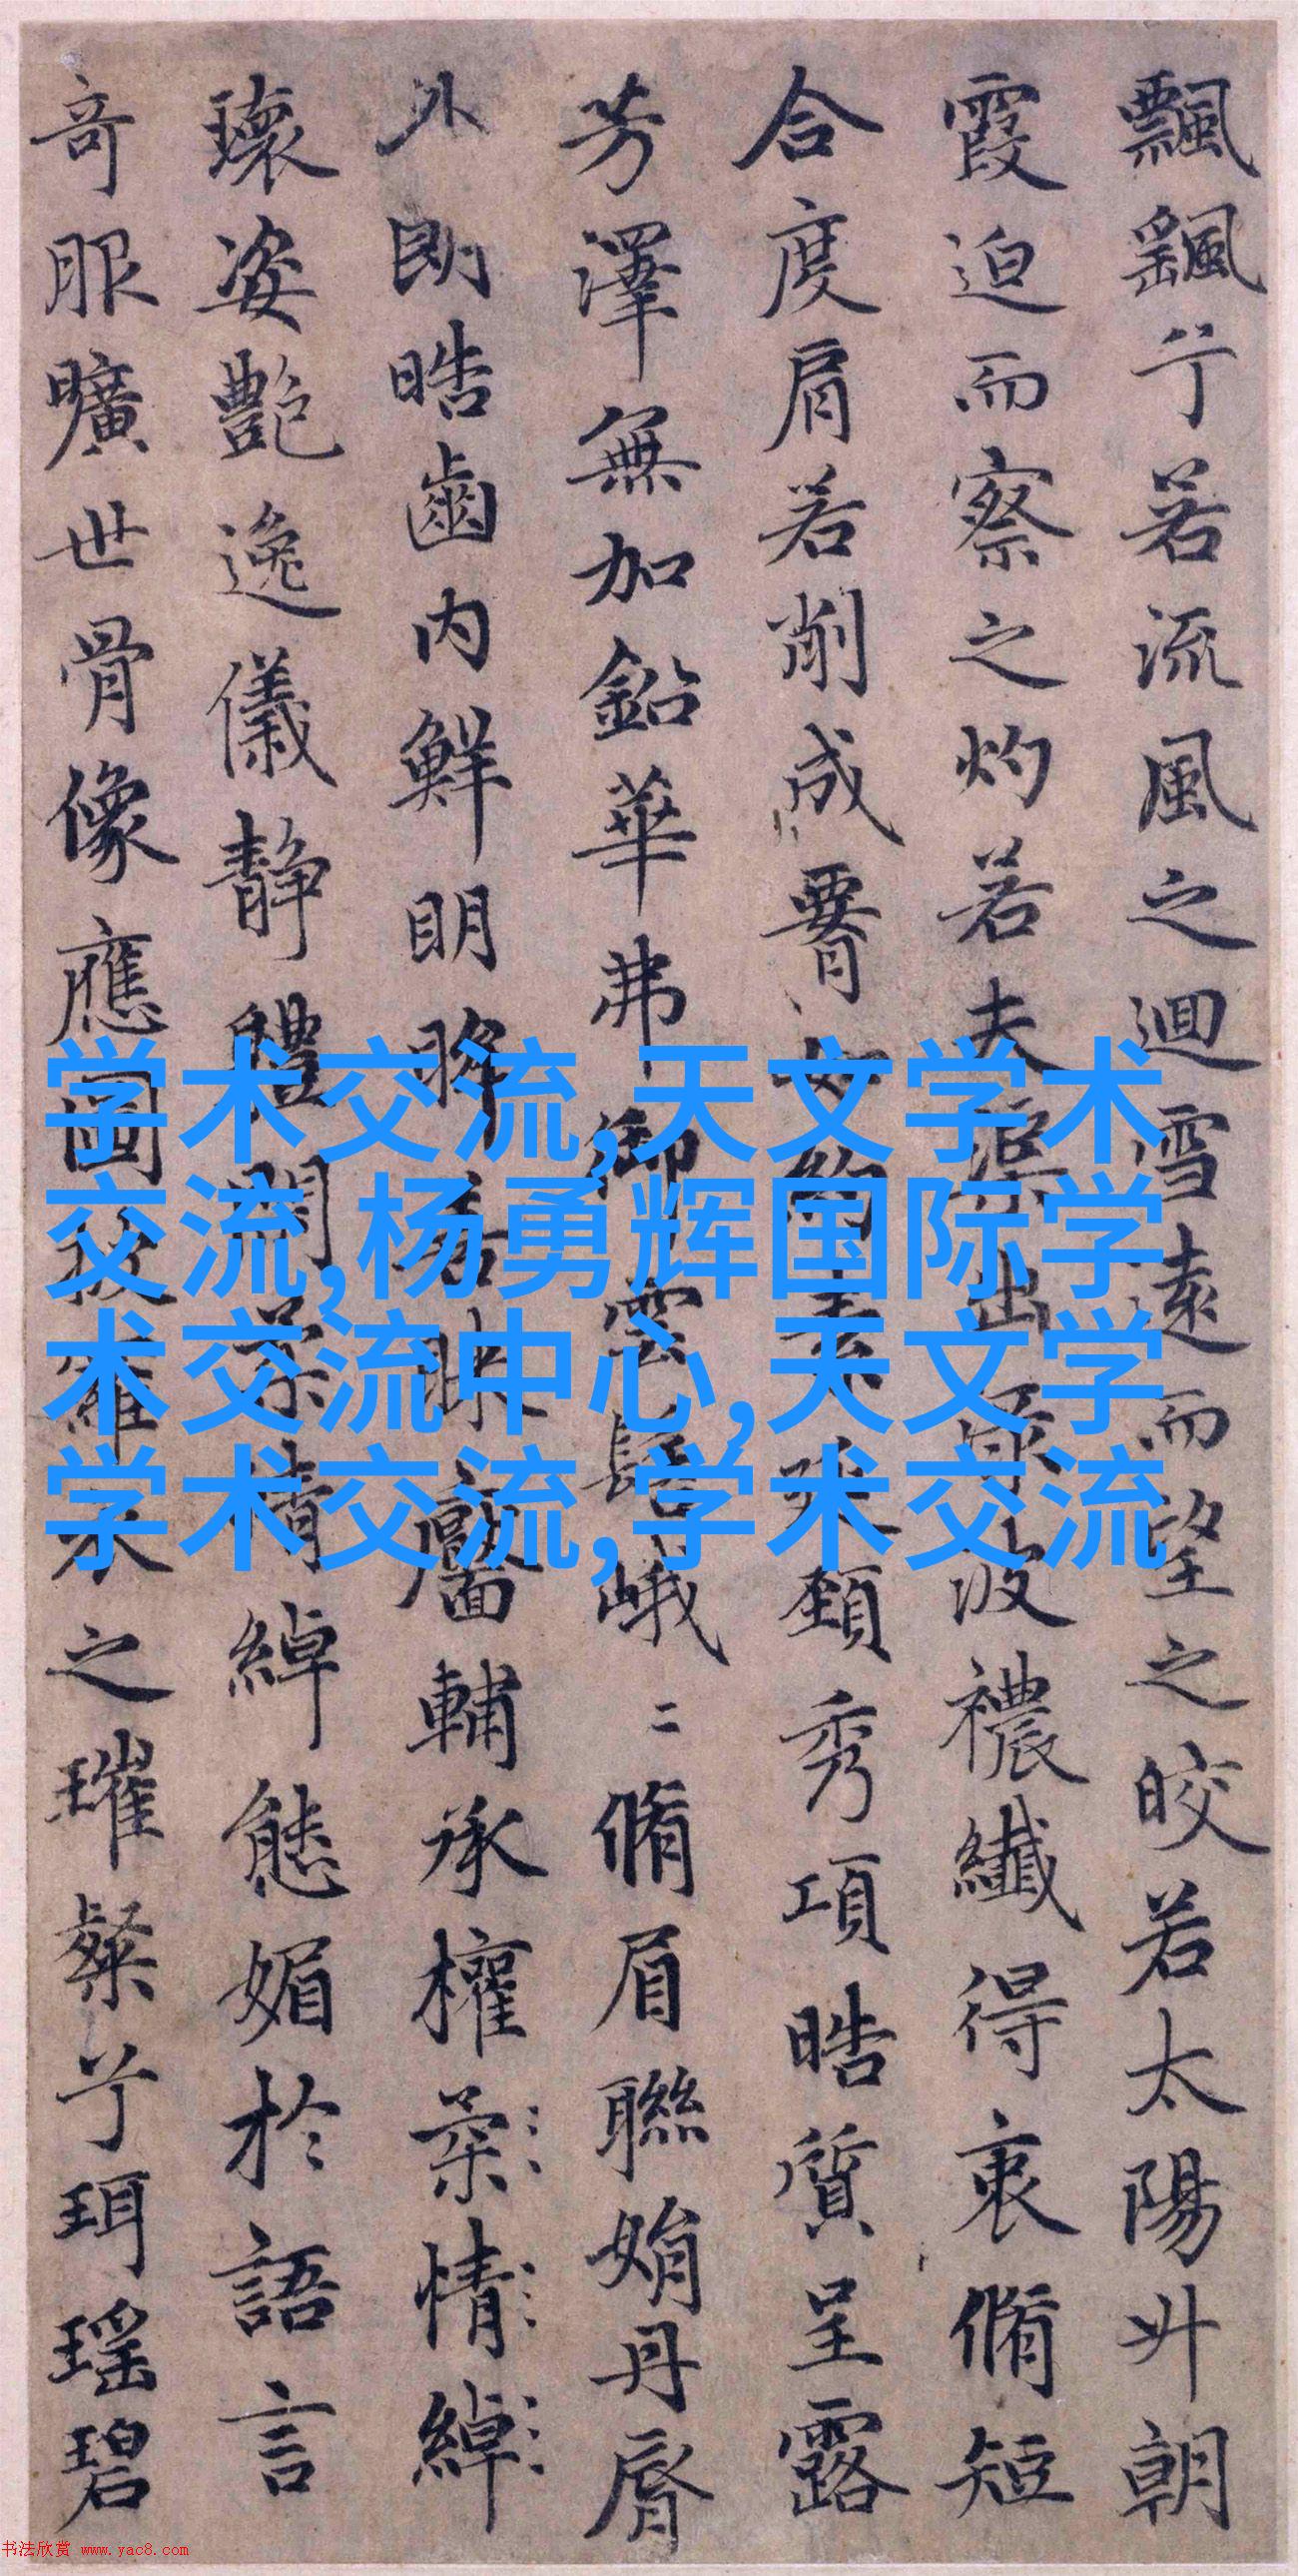 飄颻兮若流風之迴雪遠而望之皎若太陽升朝
霞迫而察之灼若夫渠出淥波襛纖得衷脩短
合度肩若削成腰如約素延頸秀項皓質呈露
芳澤無加鉛華弗御雲髻峨〻脩眉聯娟丹脣
外朗皓齒內鮮明眸善睞靨輔承權柔情綽
瓌姿艷逸儀靜體閑柔情綽態媚於語言
奇服曠世骨像應圖披羅衣之璀粲兮珥瑤碧
学术交流,天文学术
交流,杨勇辉国际学
术交流中心,天文学
学术交流,学术交流
书法欣赏 www.yac8.com